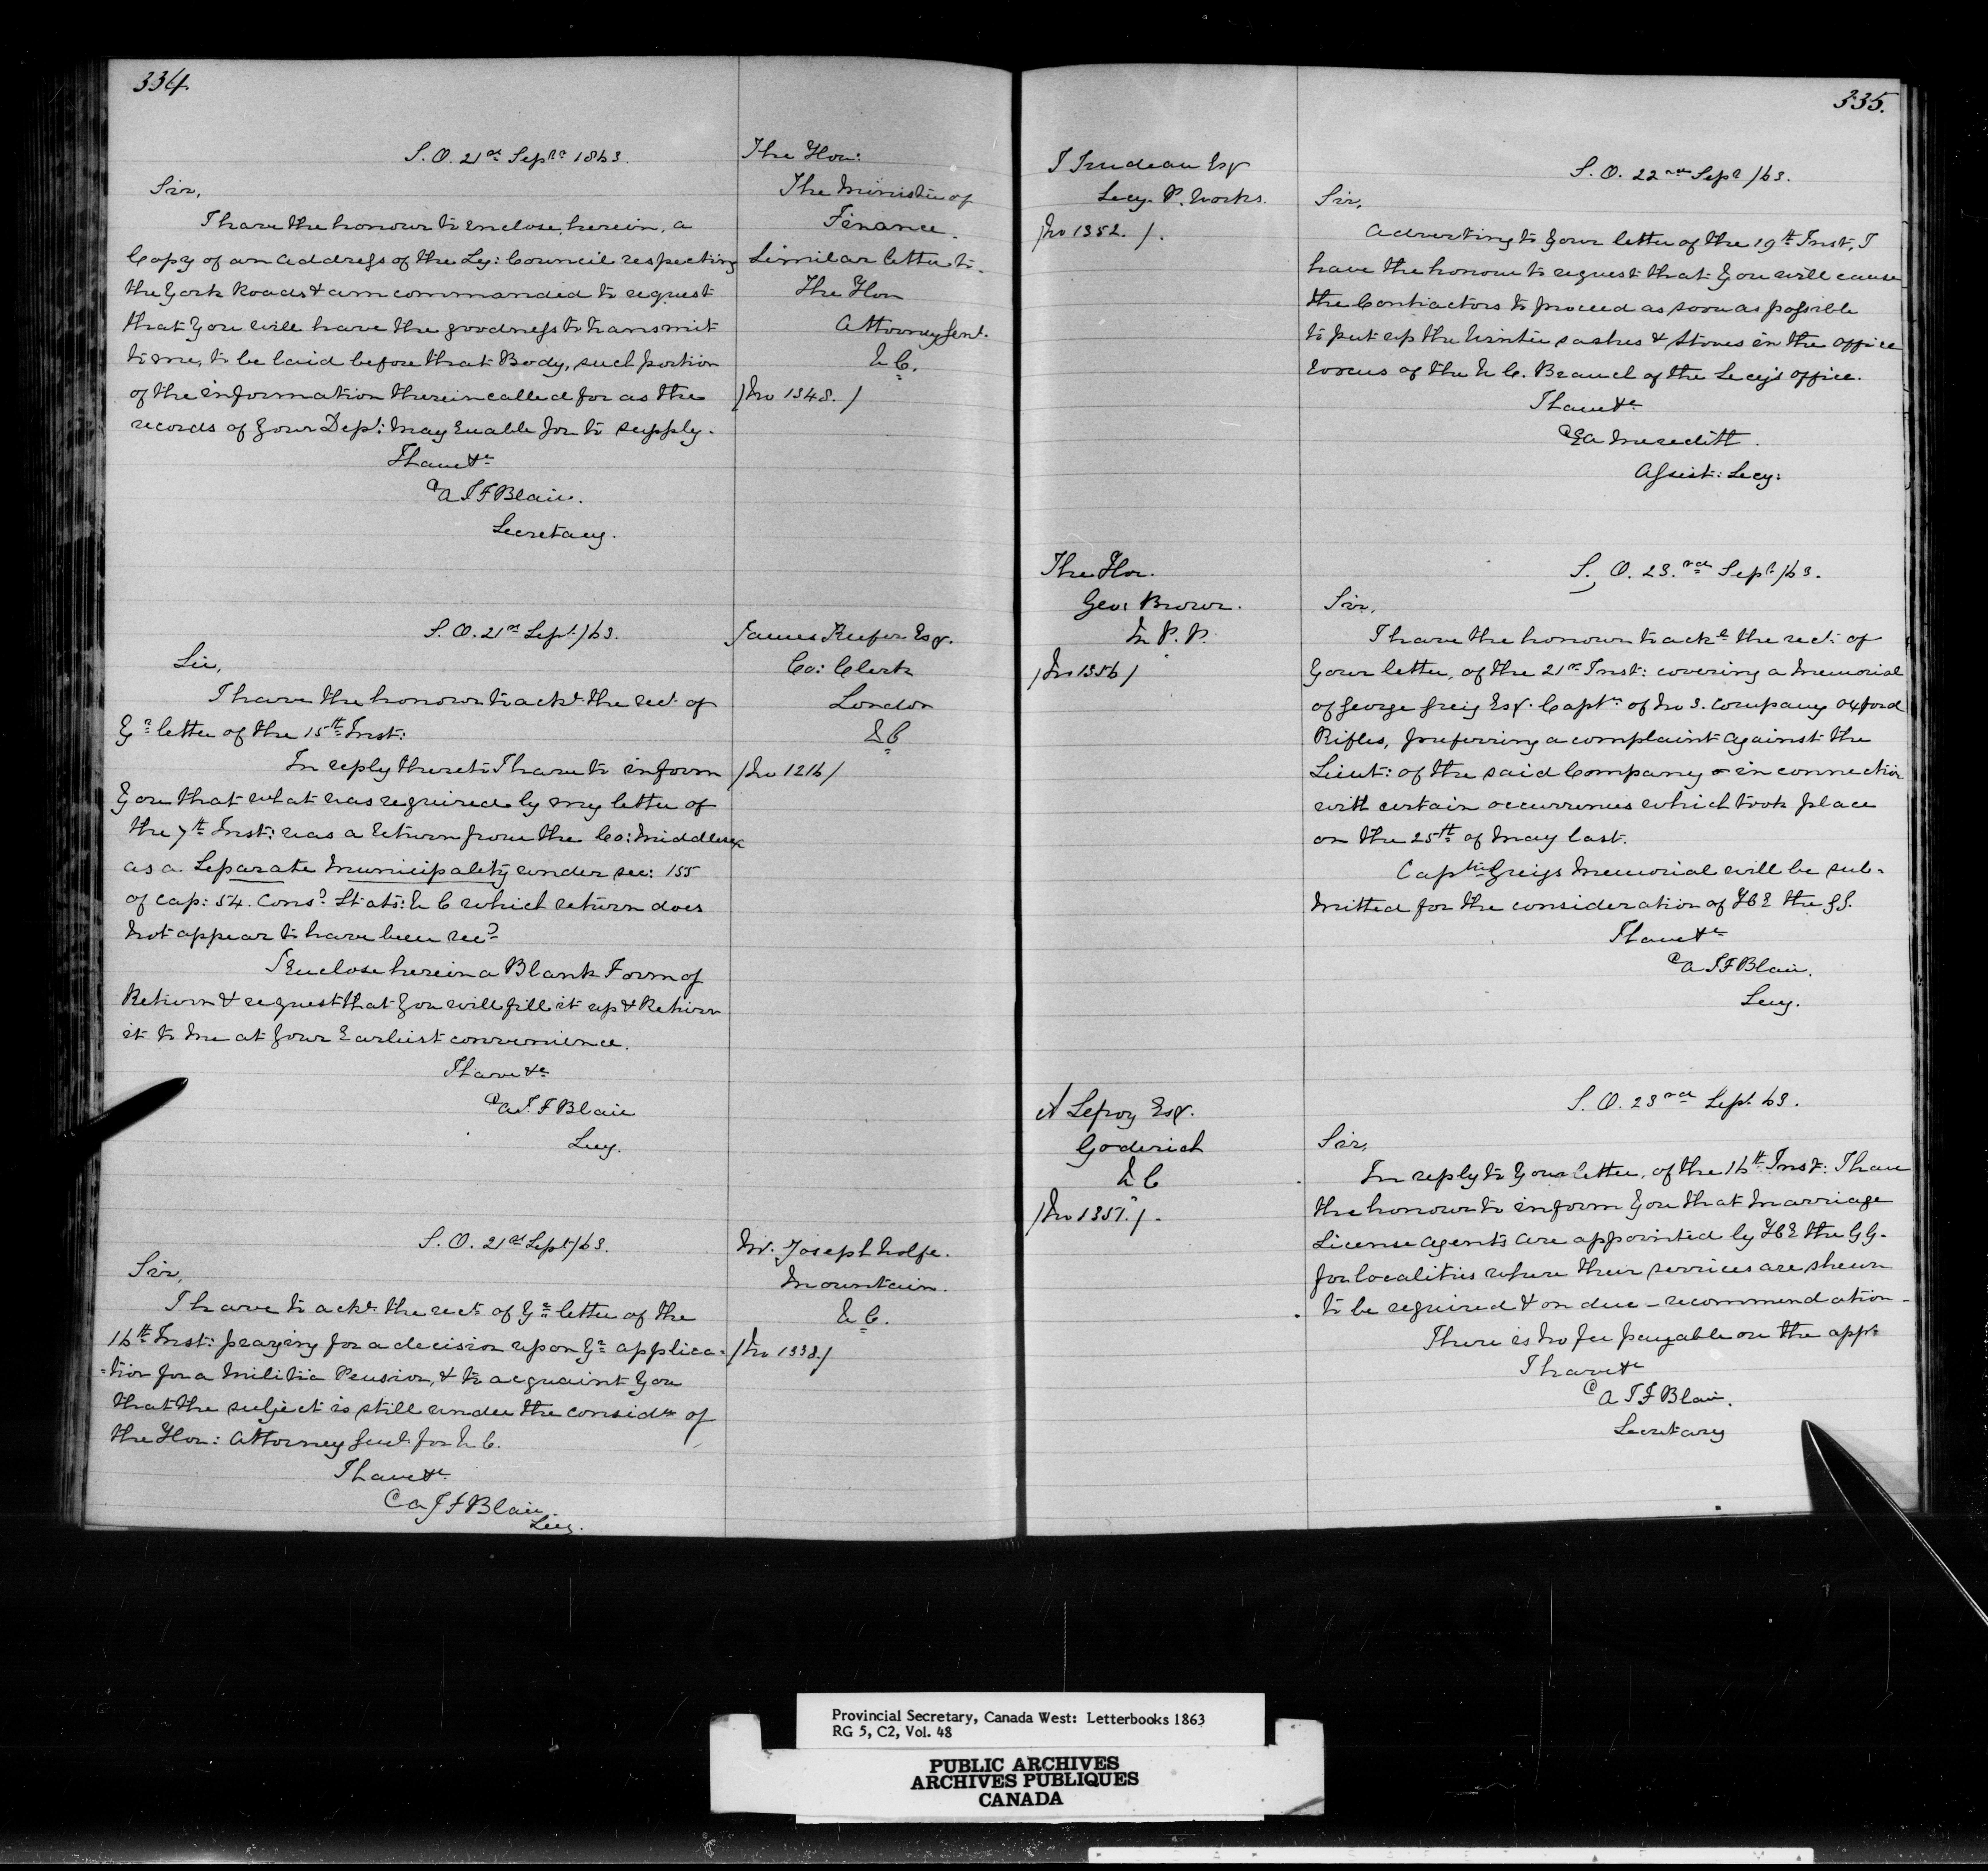 334.
S. O. 21st Septr 1863.
Sir,
I have the honour to enclose, herein, a
Copy of an address of the Leg: Council respecting
the York Roads & am commanded to request
that you will have the goodness to transmit
to me, to be laid before that Body, such portion
of the information therein called for as the
records of your Dept: may enable you to supply.
I have &c
A J F Blair.
Secretary.
The Hon:
The Minister of
Finance.
Similar letter to
The Hon
Attorney Genl.
U C.
/No 1348./
S. O. 21st Sept /63.
Sir,
I have the honour to ackt the rect of
Yr letter of the 15th Inst:
In reply thereto I have to inform
you that what was required by my letter of
the 7th Inst: was a return from the Co: Middlesex
as a Separate Municipality under sec: 155
of cap: 54. Consd Stats: U C which return does
not appear to have been recd
I enclose herein a Blank Form of
Return & request that you will fill it up & Return
it to me at your Earliest convenience.
I have &c
A J. F Blair
Secy.
James Keefer Esqr.
Co: Clerk
London
U C
/No 1216/
S. O. 21st Sept /63.
Sir,
I have to ackt the rect of Yr letter of the
16th Inst: praying for a decision upon Yr applica-
-tion for a Militia Pension, & to acquaint you
that the subject is still under the considn of
the Hon: Attorney Genl for U C.
I have &c
A J F Blair
Secy.
Mr. Joseph Wolfe.
Mountain.
U C.
/No 1338./
335.
T Trudeau Esqr
Secy. P. Works.
/No 1352./.
S. O. 22nd Sept /63.
Sir,
Adverting to your letter of the 19th Inst, I
have the honour to request that you will cause
the Contractors to proceed as soon as possible
to put up the Winter sashes & Stoves in the office
rooms of the U C. Branch of the Secy's office.
I have &c
E A Meredith.
Assist: Secy:
The Hon.
Geo: Brown.
M P. P.
/No 1356/
S. O. 23.rd Sept /63.
Sir,
I have the honour to ackt the rect of
your letter, of the 21st Inst: covering a Memorial
of George Greig Esqr. Captn of No 3. Company Oxford
Rifles, preferring a complaint against the
Lieut: of the said Company in connection
with certain occurrences which took place
on the 25th of May last.
Captn Greigs Memorial will be sub-
mitted for the consideration of H E the G G.
I have &c
A J F Blair.
Secy.
A Lefroy Esqr.
Goderich
U C
/No 1357./.
S. O. 23rd Sept. 63.
Sir,
In reply to your letter, of the 16th Inst: I have
the honour to inform you that Marriage
License agents are appointed by H E the G G.
for localities where their services are shewn
to be required & on due - recommendation -
There is no fee payable on the appt
I have &c
A J F Blair.
Secretary
Provincial Secretary, Canada West: Letterbooks 1863
RG 5, C2, Vol. 48
PUBLIC ARCHIVES
ARCHIVES PUBLIQUES
CANADA